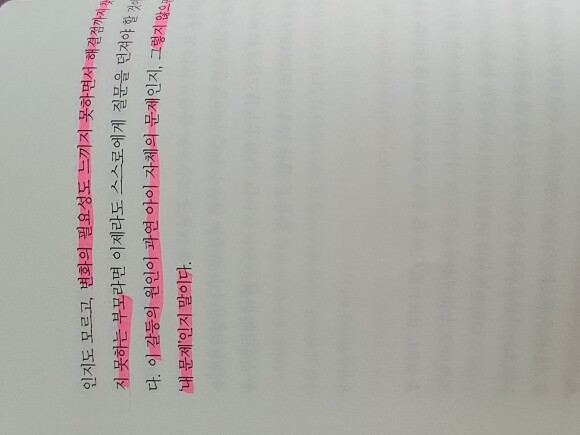 인지도 모르고, 변화의 필요성도 느끼지 못하면서 해결점까지
지 못하는 부모라면 이제라도 스스로에게 질문을 던져야 할
다. 이 갈등의 원인이 과연 아이 자체의 문제인지, 그렇지 않으
'내 문제'인지 말이다.